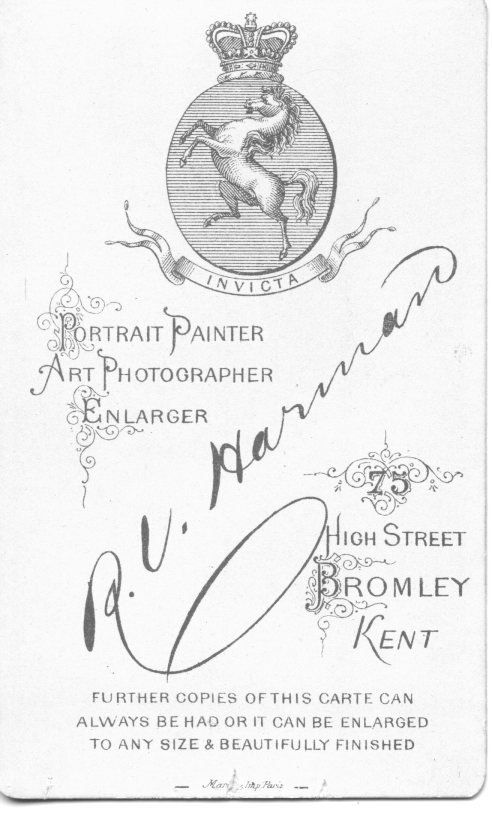 INVICTA
PORTRAIT PAINTER
ART PHOTOGRAPHER
ENLARGER
R. V. Harman
75
HIGH STREET
BROMLEY
KENT
FURTHER COPIES OF THIS CARTE CAN
ALWAYS BE HAD OR IT CAN BE ENLARGED
TO ANY SIZE & BEAUTIFULLY FINISHED
Paris